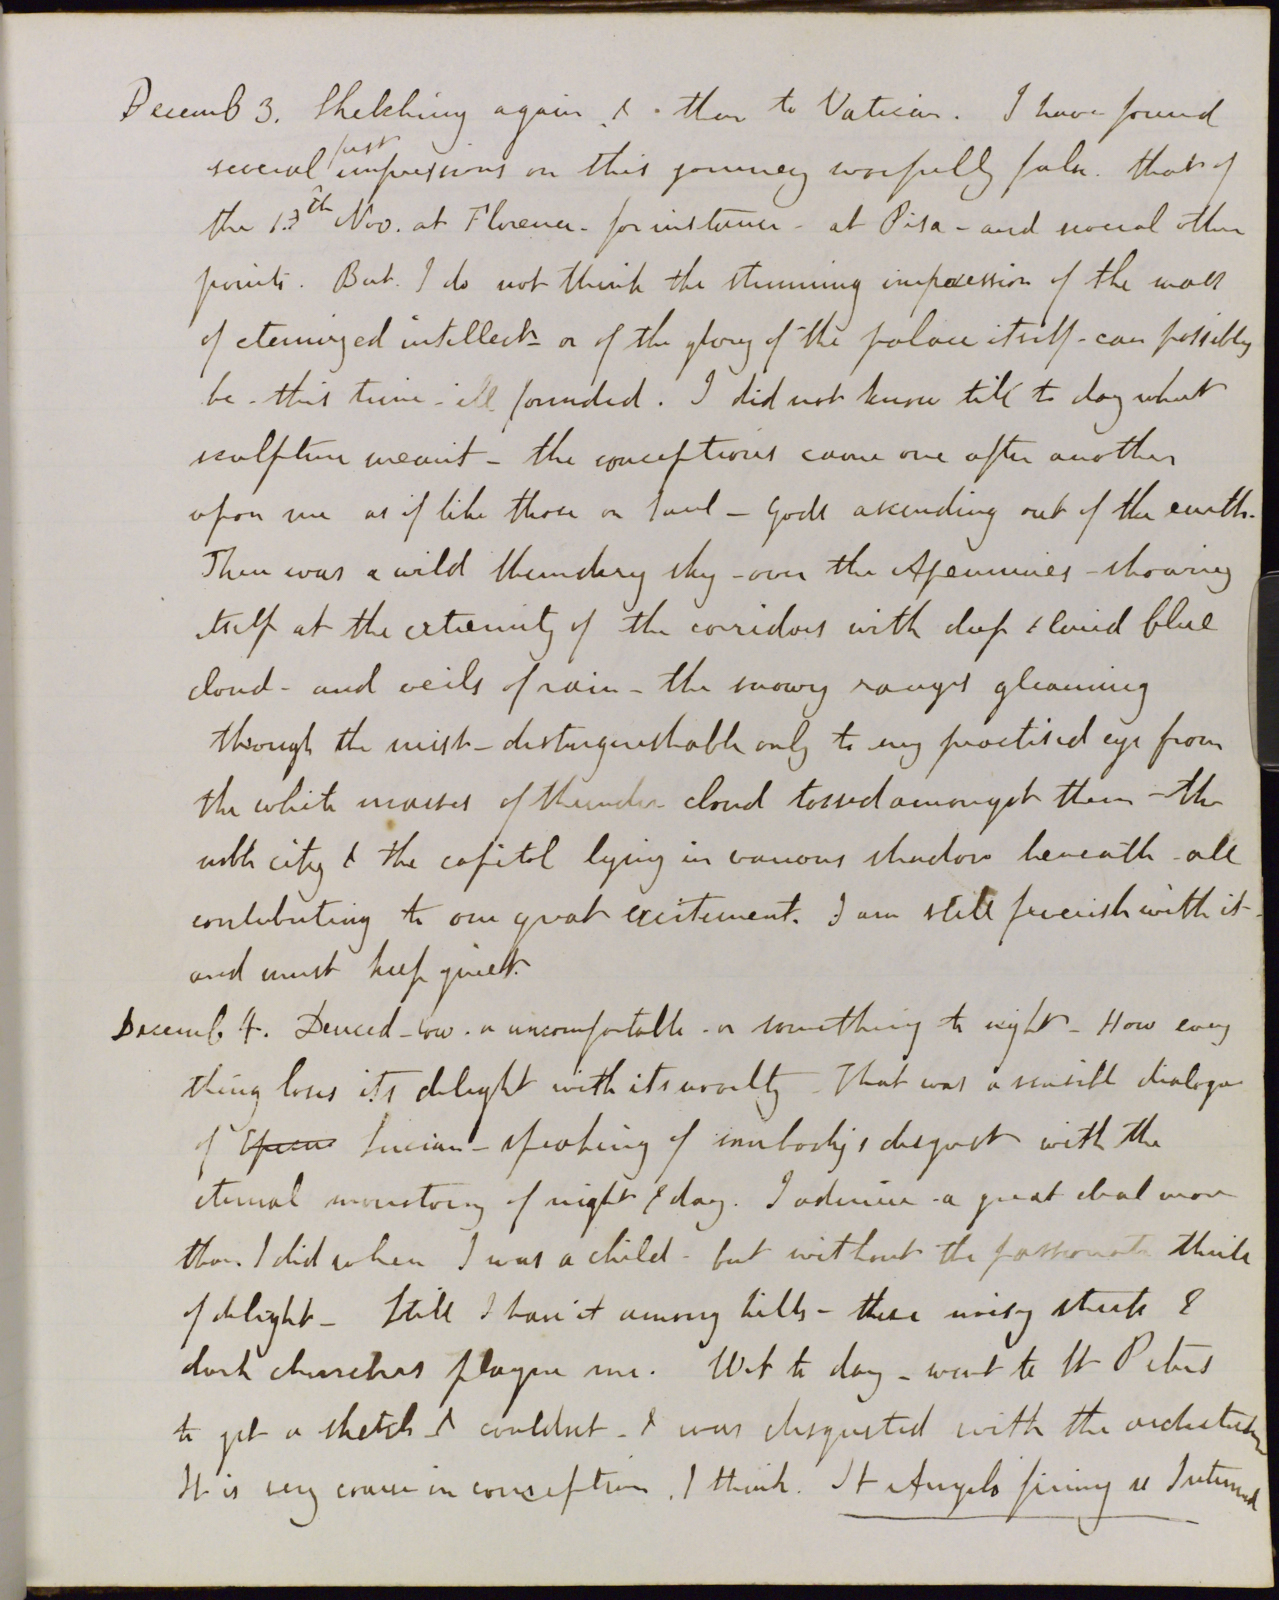 Decemb 3. Sketching again & then to Vatican. I have found
several first impressions on this journey woefully false. that of
the 13th Nov. at Florence - for instance - at Pisa - and several other
points. But I do not think the stunning impression of the mass
of eternized intellect - or of the glory of the palace itself - can possibly
be - this time - ill founded. I did not know till to day what
sculpture meant - the conceptions came one after another
upon me as if like those on Saul - Gods ascending out of the earth.
There was a wild thundery sky - over the Apennines - showing
itself at the extremity of the corridors with deep & lurid blue
cloud - and veils of rain - the snowy ranges gleaming
through the mist - distinguishable only to my practised eye from
the white masses of thunder cloud tossed amongst them - the
noble city & the capitol lying in various shadow beneath - all
contributing to one great excitement. I am still feverish with it -
and must keep quiet.
Decemb 4. Deuced - low - or uncomfortable - or something to night - How every
thing loses its delight with its novelty - That was a sensible dialogue
of Lucian - speaking of somebody's disgust with the
eternal monotony of night & day. I admire - a great deal more
than I did when I was a child - but without the passionate thrill
of delight - Still I have it among hills - these noisy streets &
dark churches plague me. Wet to day - went to St Peters
to get a sketch & couldnt - & was disgusted with the architecture
It is very coarse in conception, I think. St Angelo firing is Interned